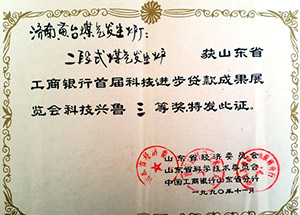 济南黄台煤气发生炉厂:
二段式煤气发生炉 获山东省
工商银行首届科技进步贷款成果展
览会科技兴鲁 三 等奖,特发此证。
山东省经济委员会
山东省科学技术委员会
中国工商银行山东省分行
一九九〇年十一月